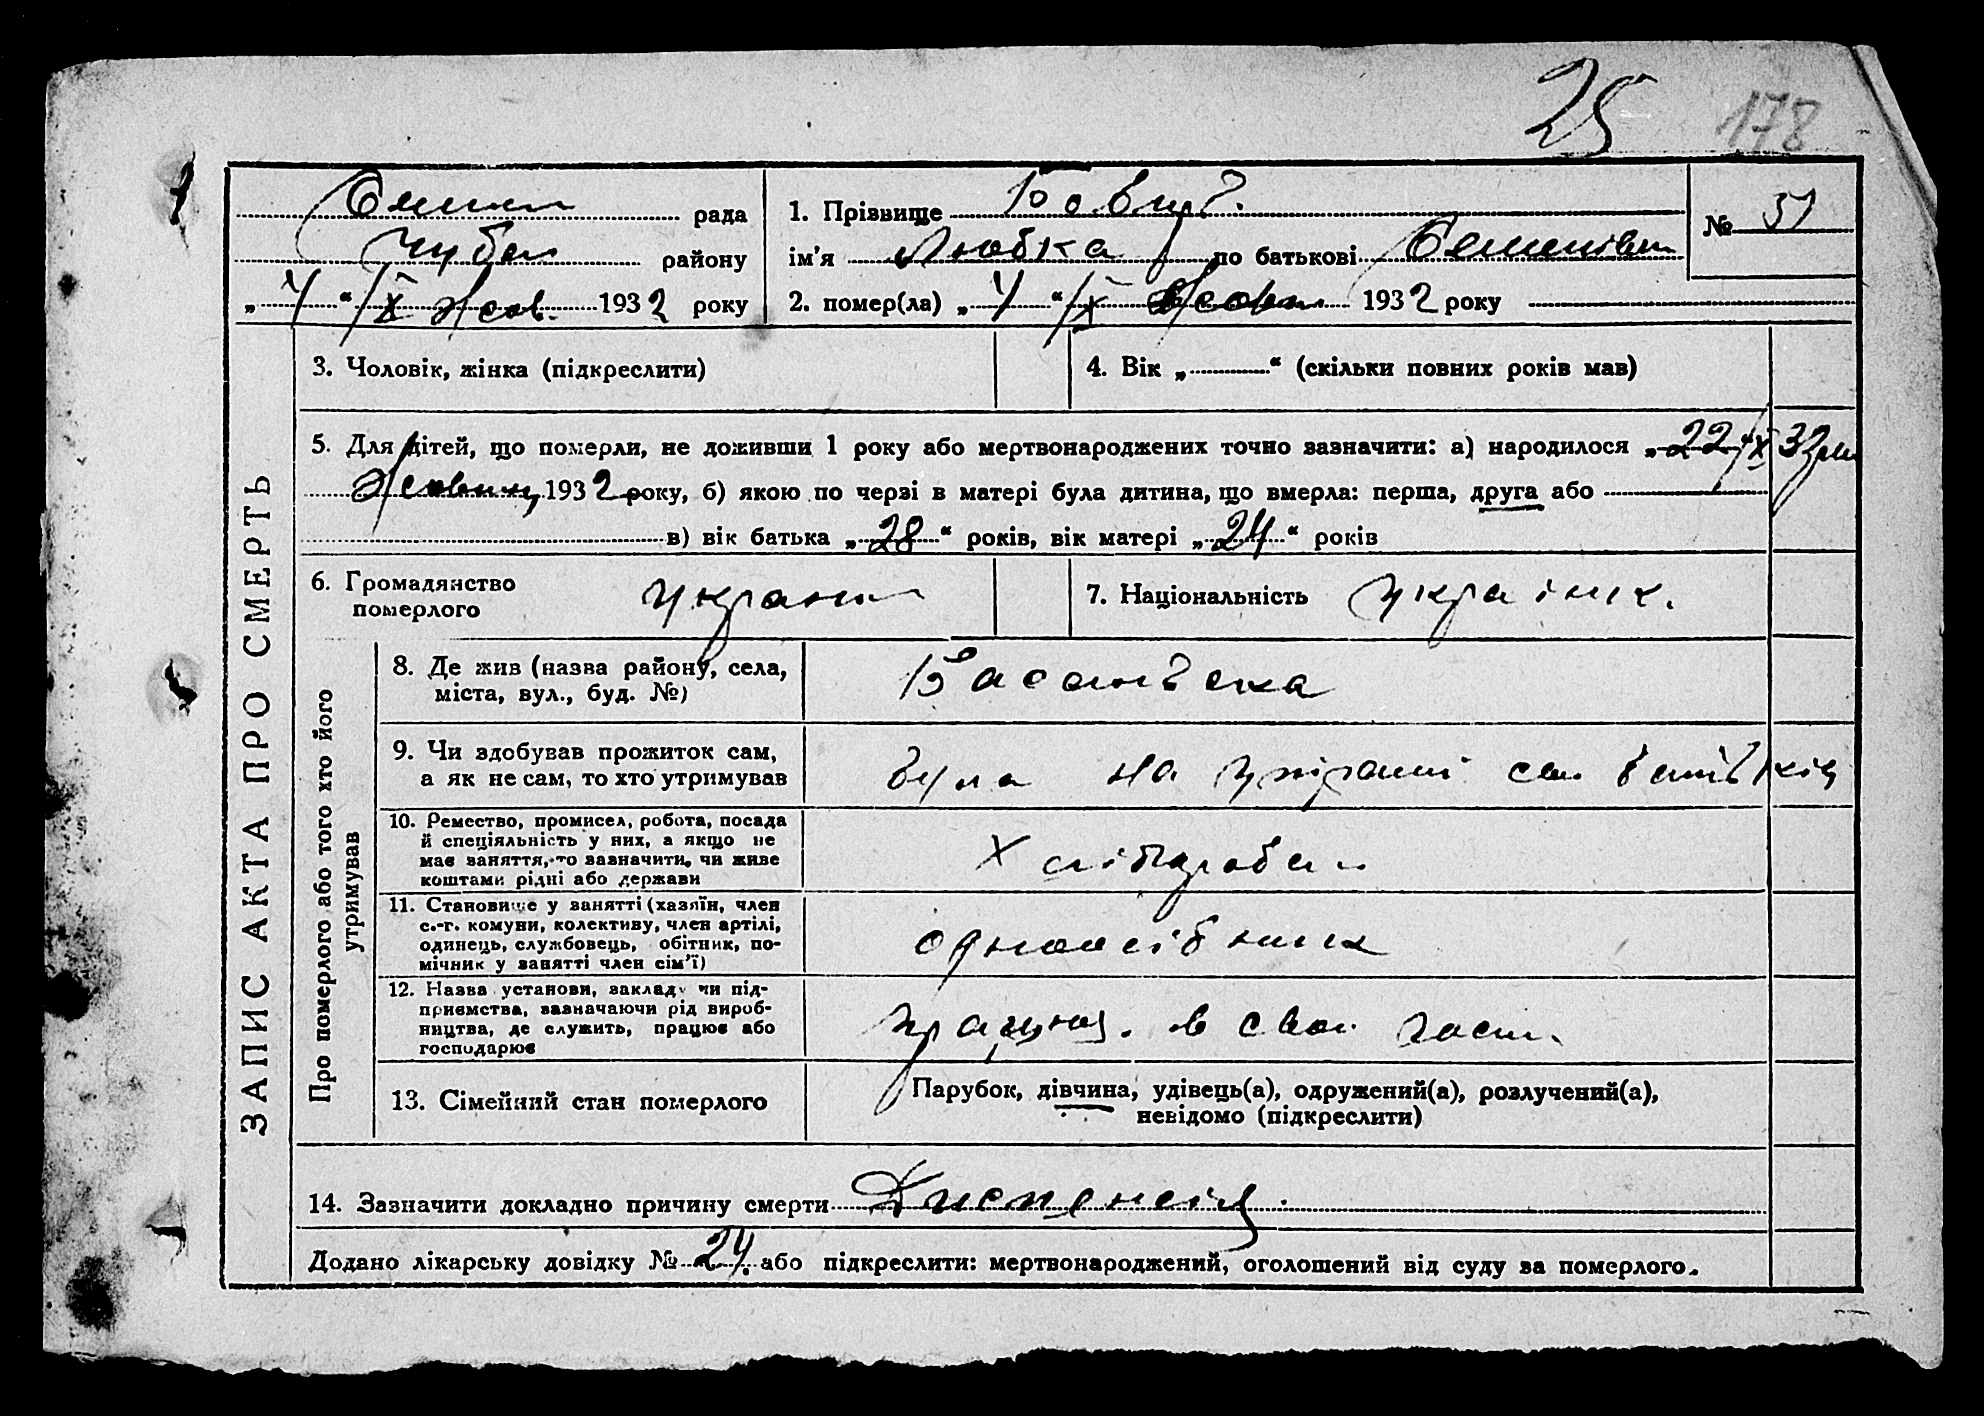 25 178
рада
1. Прізвище
№ 51
району
ім'я Любка по батькові
„ 4 “ X 1932 року
2. помер(ла) „ 4 “ X 1932 року
ЗАПИС АКТА ПРО СМЕРТЬ
3. Чоловік, жінка (підкреслити)
4. Вік „ “ (скільки повних років мав)
5. Для дітей, що померли, не доживши 1 року або мертвонароджених точно зазначити: а) народилося „ 22
1932 року, б) якою по черзі в матері була дитина, що вмерла: перша, друга або
в) вік батька „ 28 “ років, вік матері „ 24 “ років
6. Громадянство
померлого
7. Національність
Про померлого або того хто його
утримував
8. Де жив (назва району, села,
міста, вул., буд. №)
9. Чи здобував прожиток сам,
а як не сам, то хто утримував
була на
10. Ремество, промисел, робота, посада
й спеціяльність у них, а якщо не
має заняття, то зазначити, чи живе
коштами рідні або держави
11. Становище у занятті (хазяїн, член
с.-г. комуни, колективу, член артілі,
одинець, службовець, обітник, по-
мічник у занятті член сім'ї)
одноосібник
12. Назва установи, закладу чи під-
приємства, зазначаючи рід вироб-
ництва, де служить, працює або
господарює
13. Сімейний стан померлого
Парубок, дівчина, удівець(а), одружений(а), розлучений(а),
невідомо (підкреслити)
14. Зазначити докладно причину смерти Диспепсія.
Додано лікарську довідку № 24. або підкреслити: мертвонароджений, оголошений від суду за померлого.